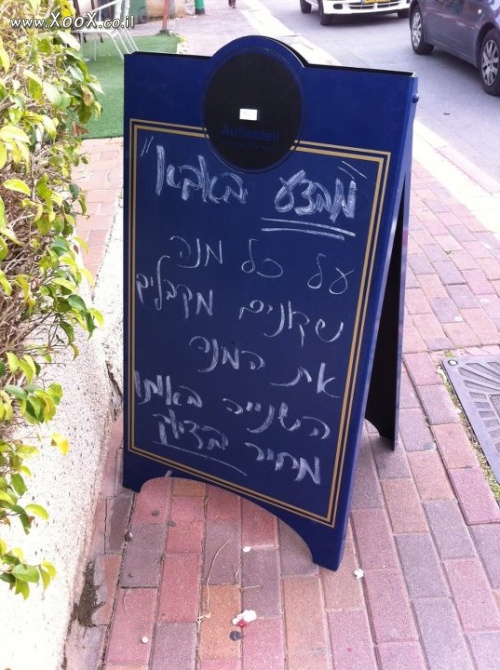 www.XooX.co.il
Ambatell
"מבצע באבא"
על כל מנה
שקונים מקבלים
את המנה
השנייה באותו
מחיר בדיוק